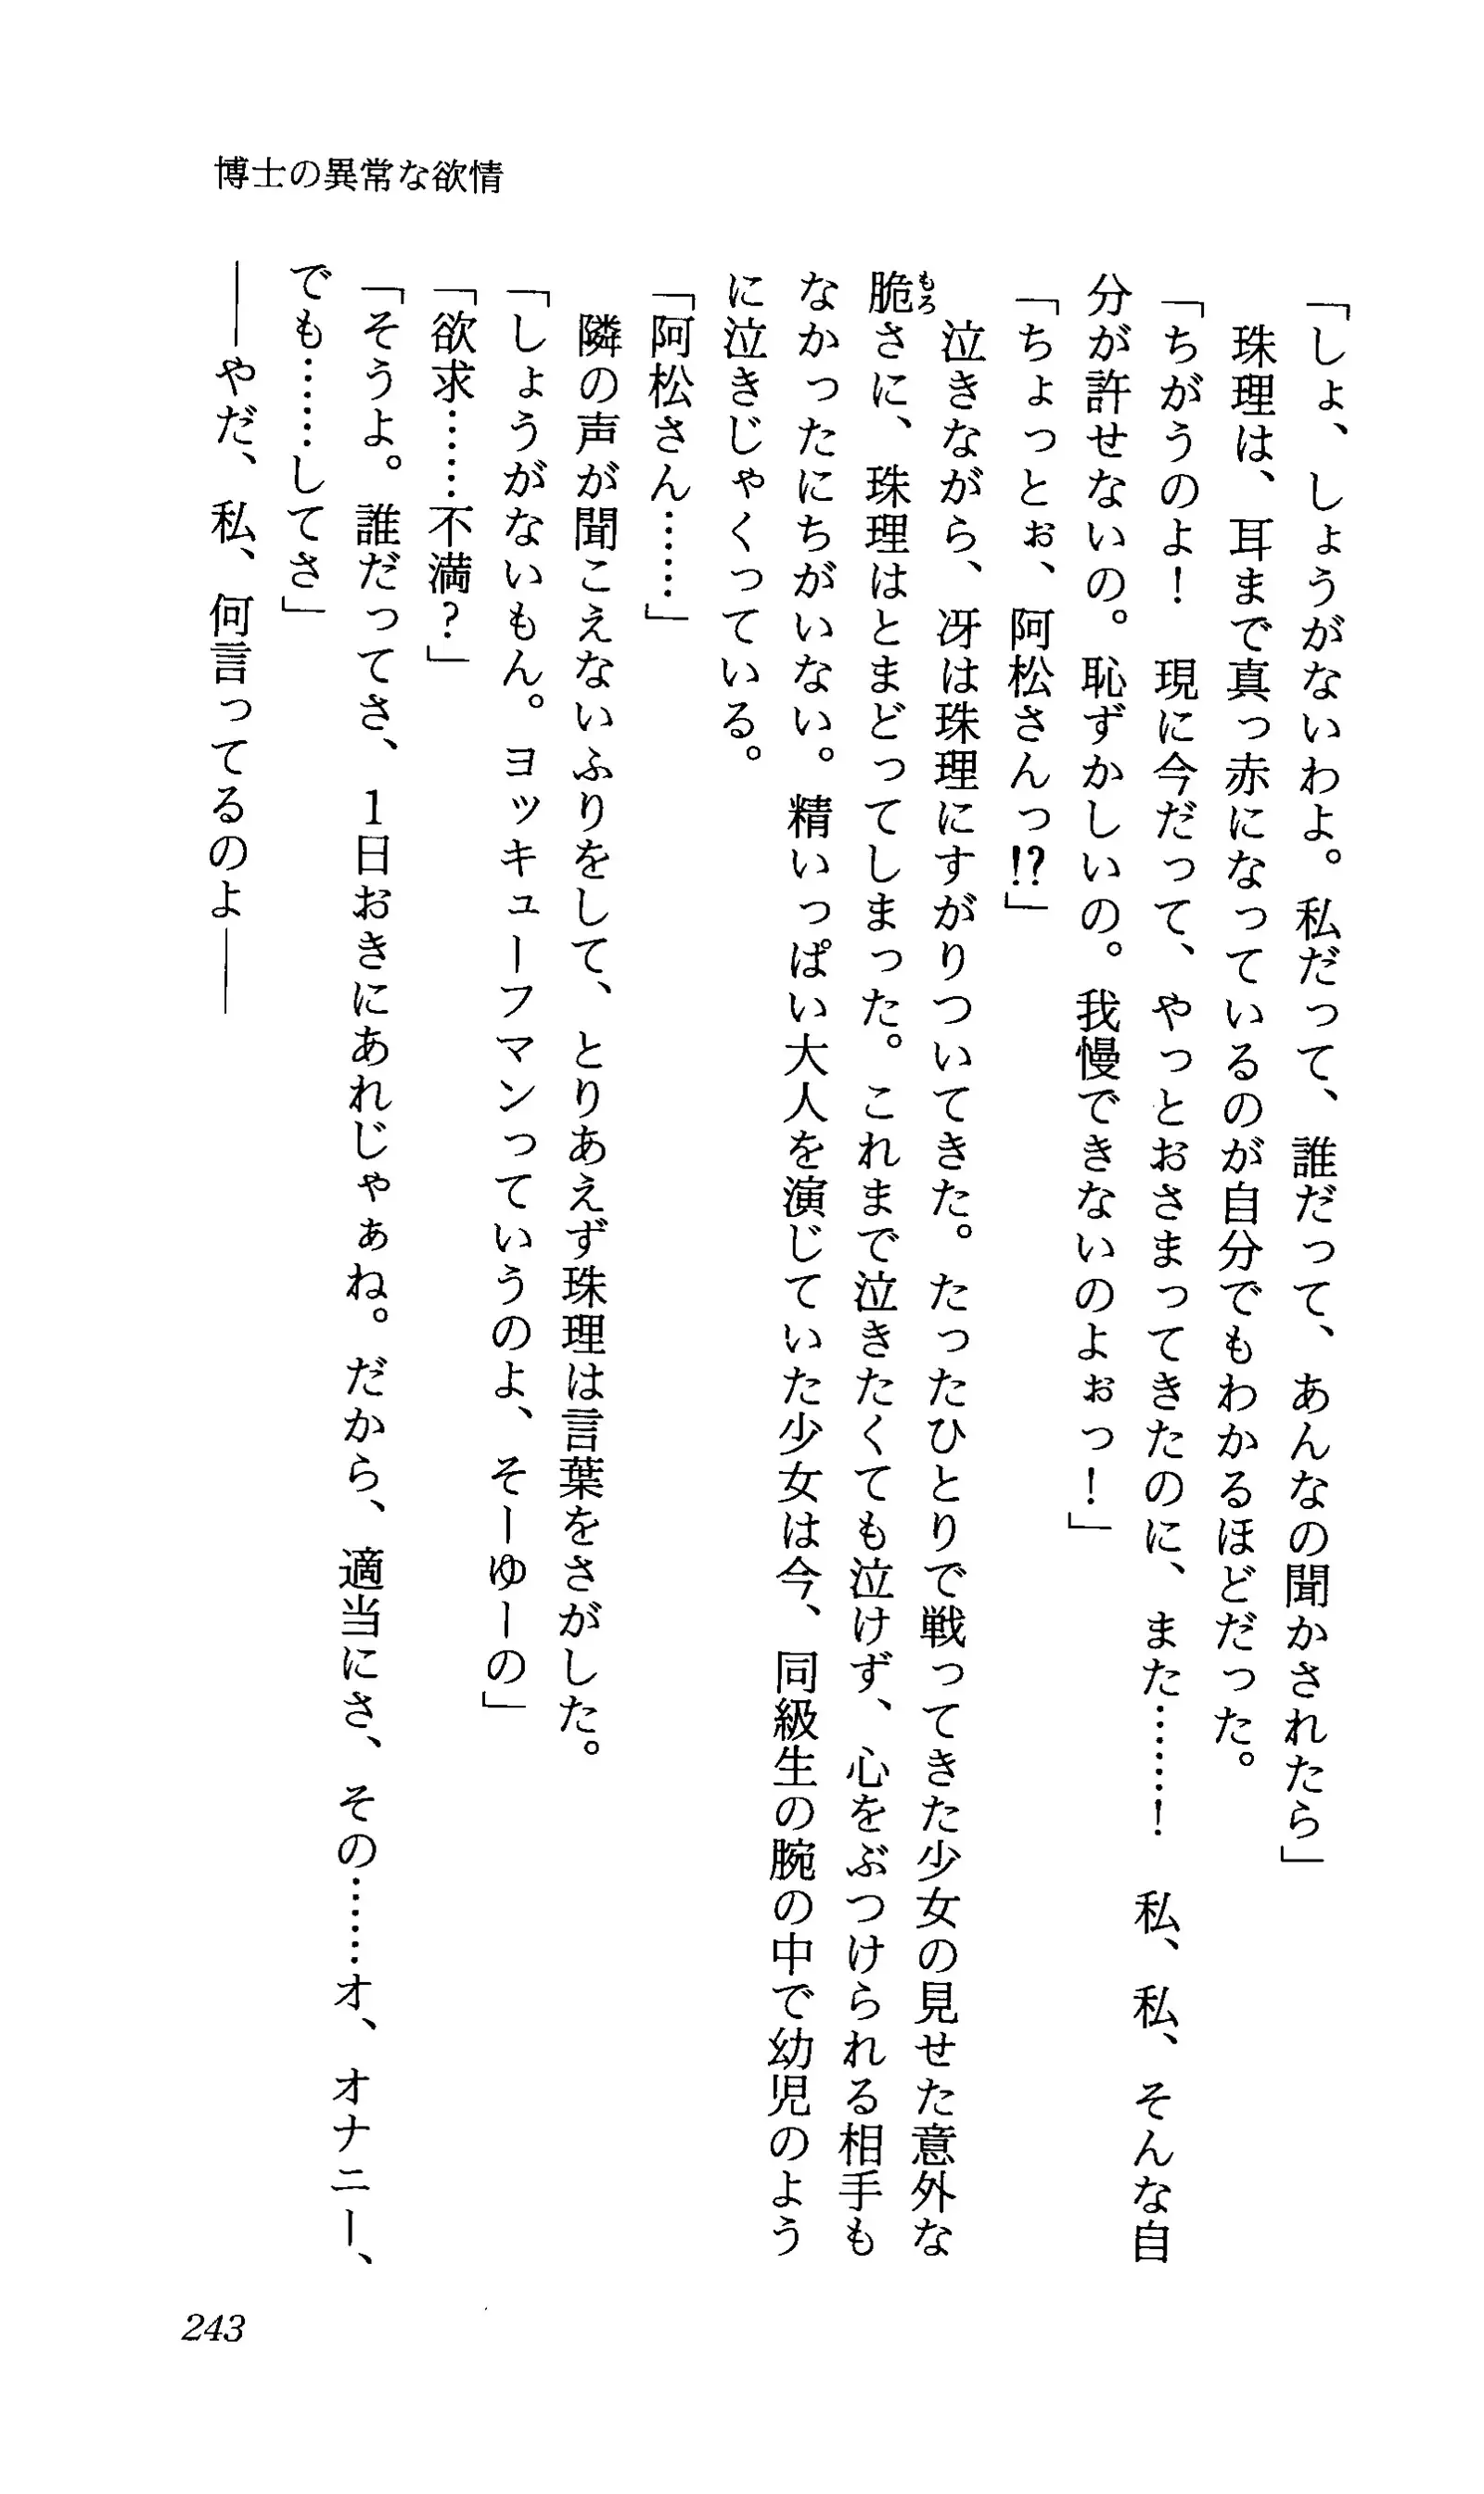 博士の異常な欲情
「しょ、しょうがないわよ。私だって、誰だって、あんなの聞かされたら」
珠理は、耳まで真っ赤になっているのが自分でもわかるほどだった。
「ちがうのよ！　現に今だって、やっとおさまってきたのに、また……！　私、私、そんな自
分が許せないの。恥ずかしいの。我慢できないのよぉっ！」
「ちょっとぉ、阿松さんっ!?」
泣きながら、冴は珠理にすがりついてきた。たったひとりで戦ってきた少女の見せた意外な
脆さに、珠理はとまどってしまった。これまで泣きたくても泣けず、心をぶつけられる相手も
なかったにちがいない。精いっぱい大人を演じていた少女は今、同級生の腕の中で幼児のよう
に泣きじゃくっている。
「阿松さん……」
隣の声が聞こえないふりをして、とりあえず珠理は言葉をさがした。
「しょうがないもん。ヨッキューフマンっていうのよ、そーゆーの」
「欲求……不満？」
「そうよ。誰だってさ、1日おきにあれじゃぁね。だから、適当にさ、その……オ、オナニー、
でも……してさ」
――やだ、私、何言ってるのよ――
243